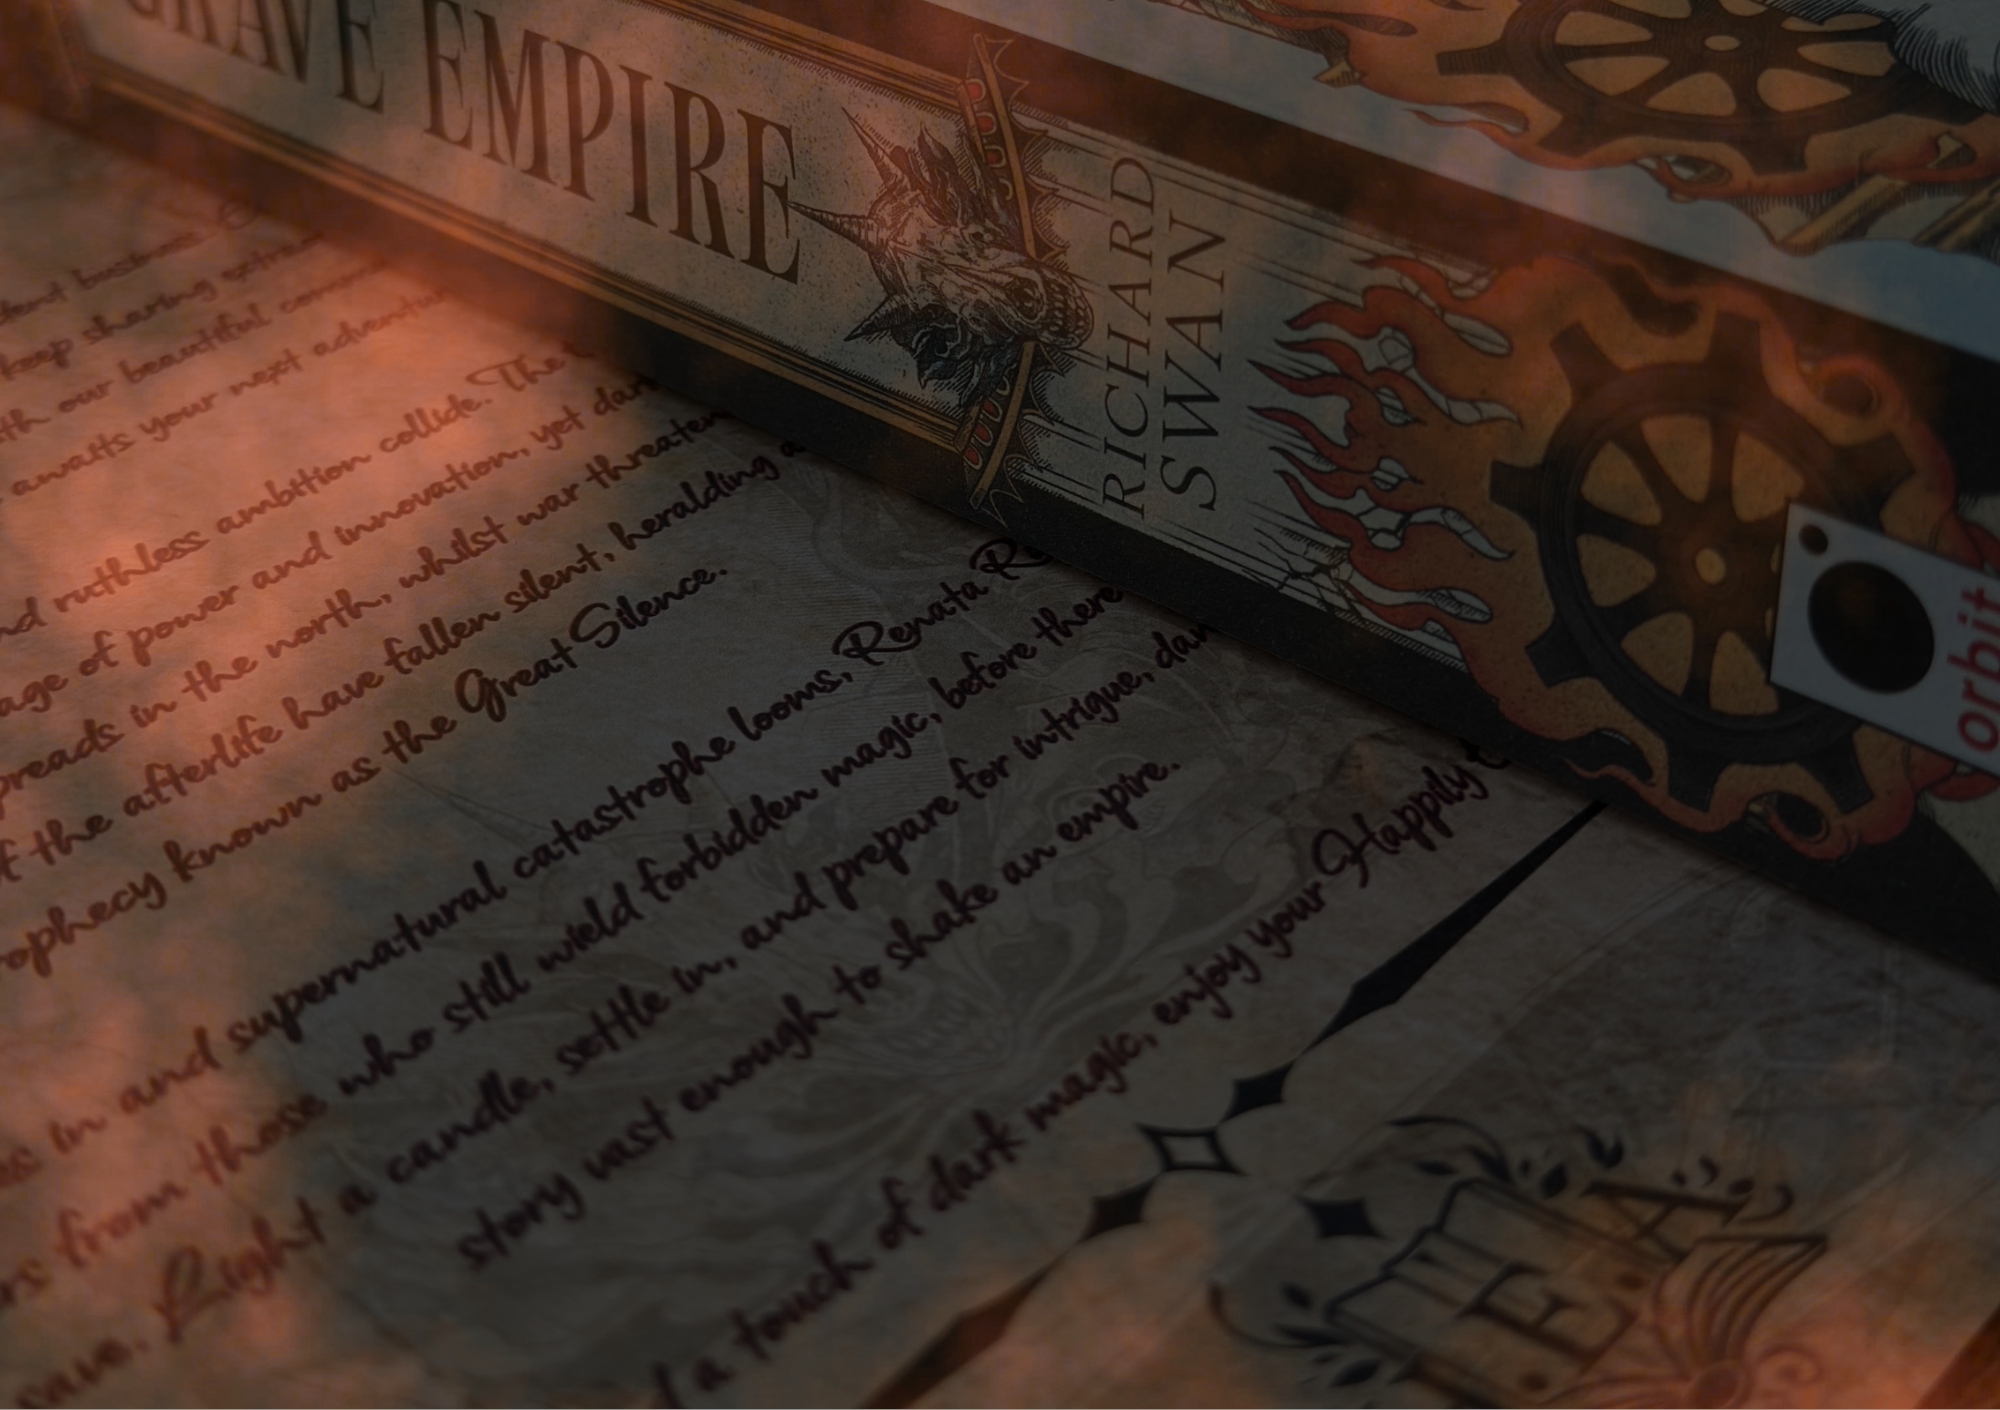 GRAVE EMPIRE
RICHARD
SWAN
orbit
keep sharing
with our beautiful
awaits your next
and ruthless ambition collide. The
age of power and innovation, yet
in the north, whilst war
of the afterlife have fallen silent, heralding
known as the Great Silence.
in and supernatural catastrophe looms, Renata
from those who still wield forbidden magic, before there
Light a candle, settle in, and prepare for intrigue,
story vast enough to shake an empire.
a touch of dark magic, enjoy your Happily